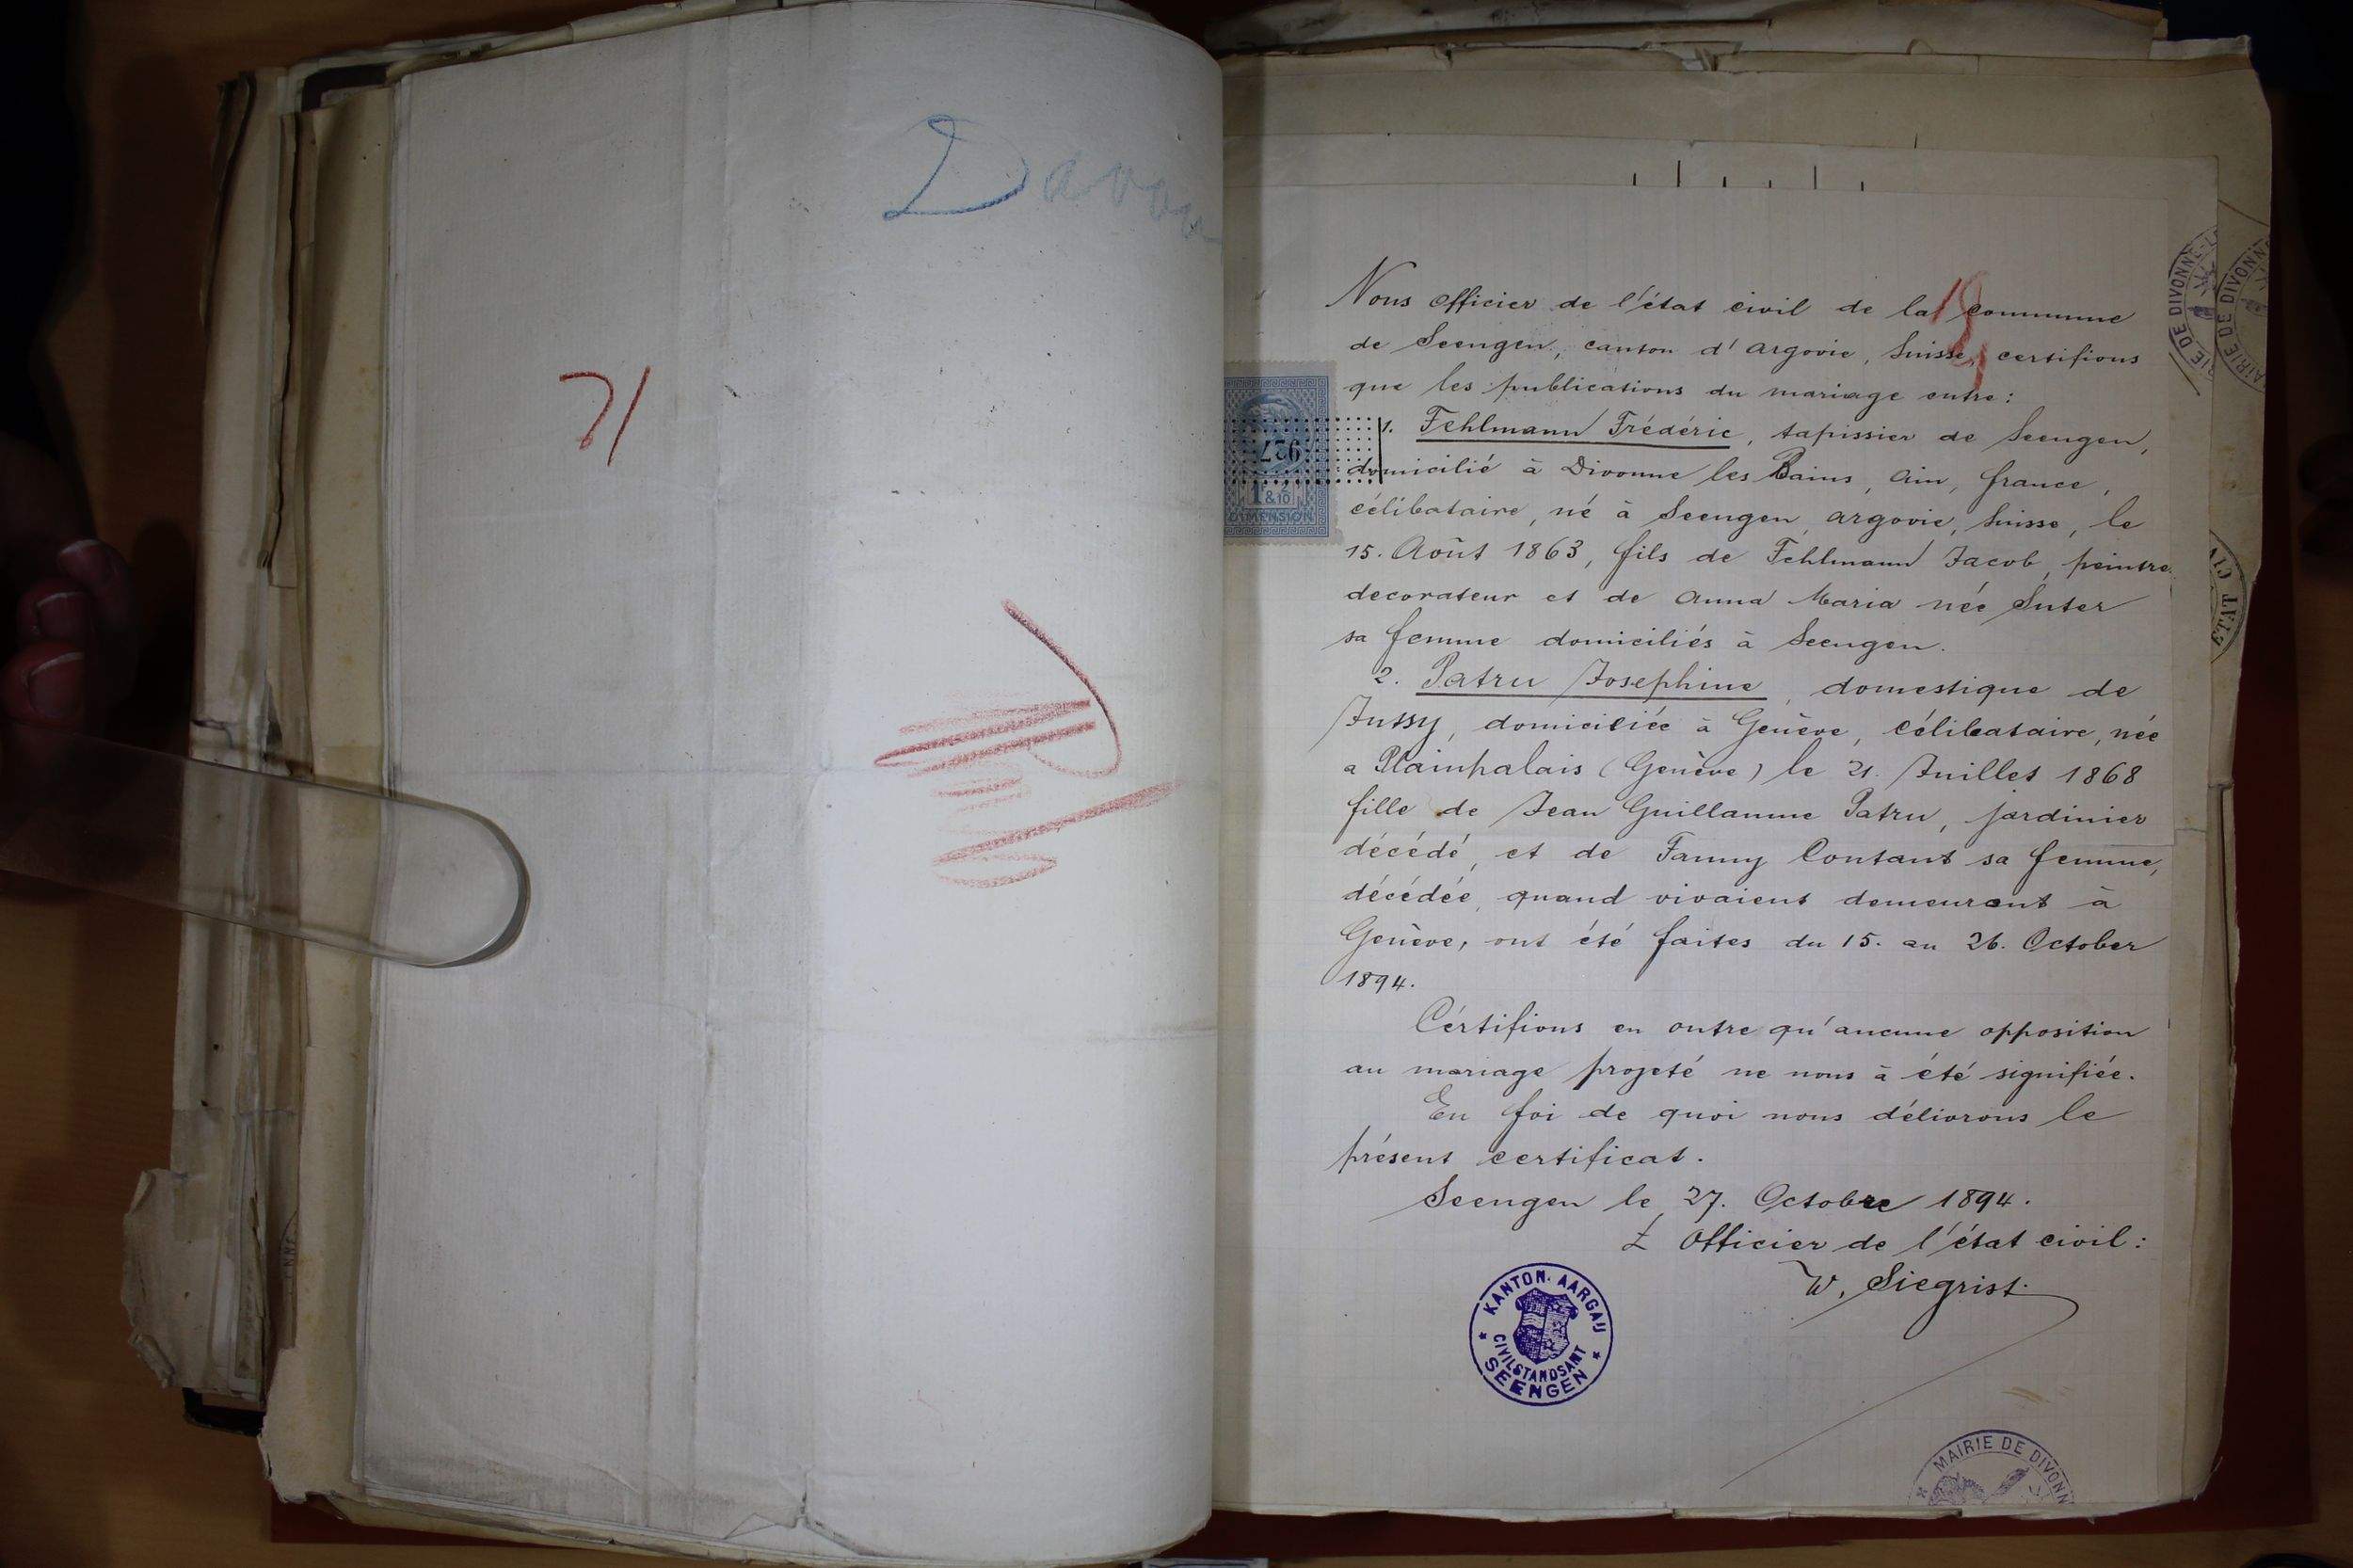 Nous officier de l'état civil de la commune
de Seengen, canton d'argovie, Suisse, certifions
que les publications du mariage entre:
1. Fehlmann Frédéric, tapissier de Seengen,
domicilié à Divonne les Bains, Ain, france,
célibataire, né à Seengen, argovie, Suisse, le
15. Août 1863, fils de Fehlmann Jacob, peintre
decorateur et de Anna Maria née Suter
sa femme domiciliés à Seengen.
2. Patru Josephine, domestique de
Jussy, domiciliée à Genève, célibataire, née
a Plainpalais (Genève) le 21. Juillet 1868
fille de Jean Guillaume Patru, jardinier
décédé, et de Fanny Contant sa femme,
décédée, quand vivaient demeurant à
Genève, ont été faites du 15. au 26. October
1894.
Cértifions en outre qu'aucune opposition
au mariage projeté ne nous à été signifiée.
En foi de quoi nous délivrons le
présent certificat.
Seengen le 27. Octobre 1894.
L Officier de l'état civil:
W. Siegrist.
KANTON AARGAU
CIVILSTANDSAMT
SEENGEN
MAIRIE DE DIVONN
1 & 2/10
DIMENSION